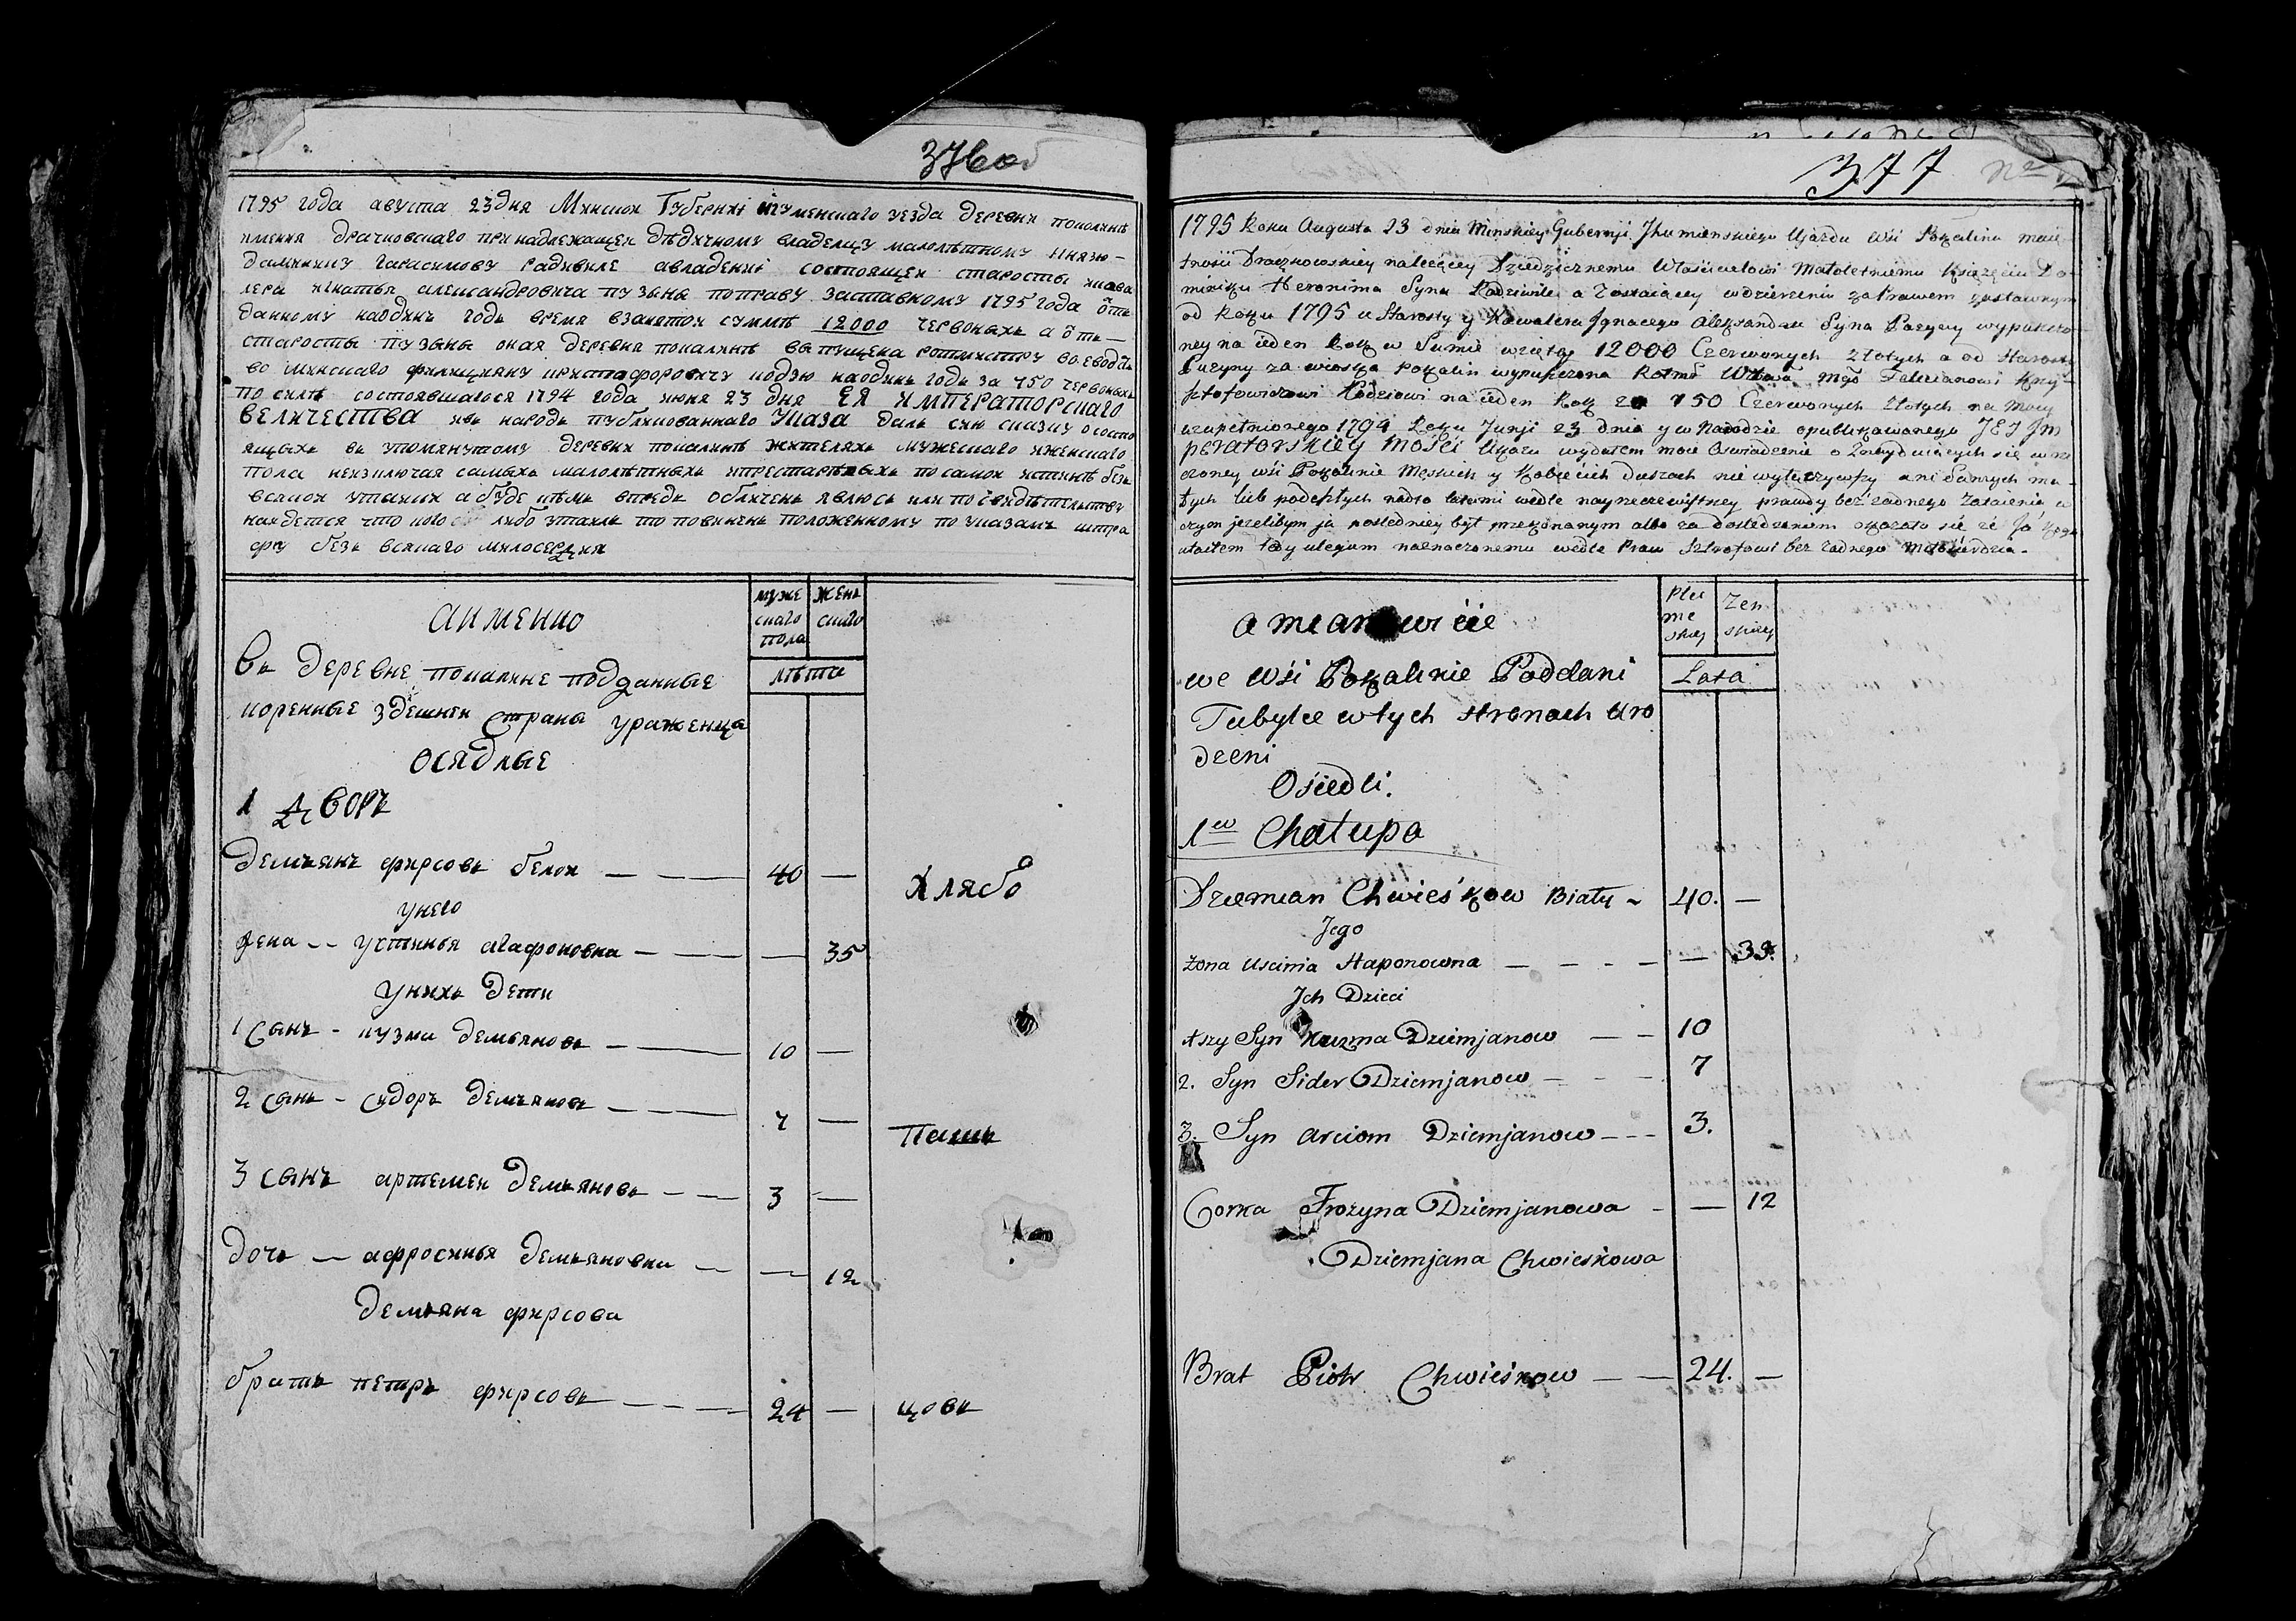 376 об
1795 года августа 23 дня Минской Губерніи игуменскаго уезда деревни покалинъ
имения драчковскаго принадлежащей дѣдичному владелцу малолѣтному князю
даминику гарасимову радивиле авладеніи состоящей старосты икава
лера игнатья александровича пузыны поправу заставному 1795 года отъ
данному наодинъ годъ время взанятой суммѣ 12000 червоныхъ а отъ
старосты пузыны оная деревня покалинъ выпущена ротмистру воеводст
во минскаго филицияну кристофоровичу кодзю наодинъ годъ за 750 червоныхъ
по силѣ состоявшагося 1794 года июня 23 дня ЕЯ ИМПЕРАТОРСКАГО
ВЕЛИЧЕСТВА ивъ народъ публикованнаго Указа далъ сию сказку о состо
ящыхъ въ упомянутому деревни покалинѣ жителяхъ мужескаго иженскаго
пола неизключая самыхъ малолѣтныхъ ипрестарѣлыхъ по самой истинѣ безъ
всякой утайки а буде кѣмъ впредь обличенъ явлюсь или по свидѣтельству
найдется что кого либо утаилъ то повиненъ положенному по указамъ штра
фу безъ всякаго милосердия
аименно
муже
скаго
пола
женъ
скаго
лѣта
Въ деревне покалине подданные
коренные здешней страны ураженца
осядлые
1 Дворъ
Демьянъ фирсовъ белой — 40 —
хлябо
унего
жена -- устинья агафоновна — — 35
унихъ дети
1 сынъ - кузма демьяновъ — 10 —
2 сынъ - сидоръ демьяновъ — 7 —
пашъ
3 сынъ артемей демьяновъ — 3 —
дочь — афросинья демьяновна — — 12
демьяна фирсова
братъ петръ фирсовъ — 24 —
цовъ
377
1795 Roku Augusta 23 dnia Minskiey Gubernji Jhumienskiego Ujazdu wśi Pokalina maię
tnosci Draczkowskiey nalezącey Dziedzicznemu Właścicielowi Małoletniemu Xsięzęciu Do
miniku Heronima Syna Radziwile a Zostaiącey wdzierzeniu za Prawem zastawnym
od Roku 1795 u Starosty y Kawalera Jgnacego Alexandra Syna Puzyny wypuszczo
ney na ieden Rok w Sumie wzietey 12000 Czerwonych złotych a od Starosty
Puzyny za wioska Pokalin wypuszczona Rotmḡ Wztwa Mgō Felicianowi Krzy
sztofowiczowi Kodziowi na ieden Rok za 750 Czerwonych złotych na mocy
uzupełnionego 1794 Roku Junji 23 dnia y w Narodzie opublikowanego JEJ Jm
peratorskiey Mości Ukazu wydałem moie Oswiadczenie o Znayduiących się w rze
czoney wśi Pokalinie Męskich y Kobiecich Duszach nie wyłuczywszy ani Samych ma
łych lub podeszłych nadto latami wedle nayrzeczewistney prawdy bez zadnego Zataienia w
czym jezelibym ja poslędniey był przekonanym albo za dosledzeniem okazało się ze ja kogo
utaiłem tedy ulegam naznaczonemu wedle Praw Sztrofowi bez zadnego Miłosierdzia.
a mianowicie
Płci
mę
skiey
Zen
skiey
Lata
we Wśi Pokalinie Poddani
Tubylce w tych stronach uro
dzeni
Osiedli.
1wo Chałupa
Dziemian Chwieśkow Biały 40. —
Jego
zona Uscinia Haponowna — — 35.
Jch Dzieci
1szy Syn Kuzma Dziemjanow — 10
2. Syn Sider Dziemjanow — 7
3. Syn Arciom Dziemjanow --- 3.
Corka Frozyna Dziemjanowa - — 12
Dziemjana Chwieśkowa
Brat Piotr Chwieśkow — 24. —